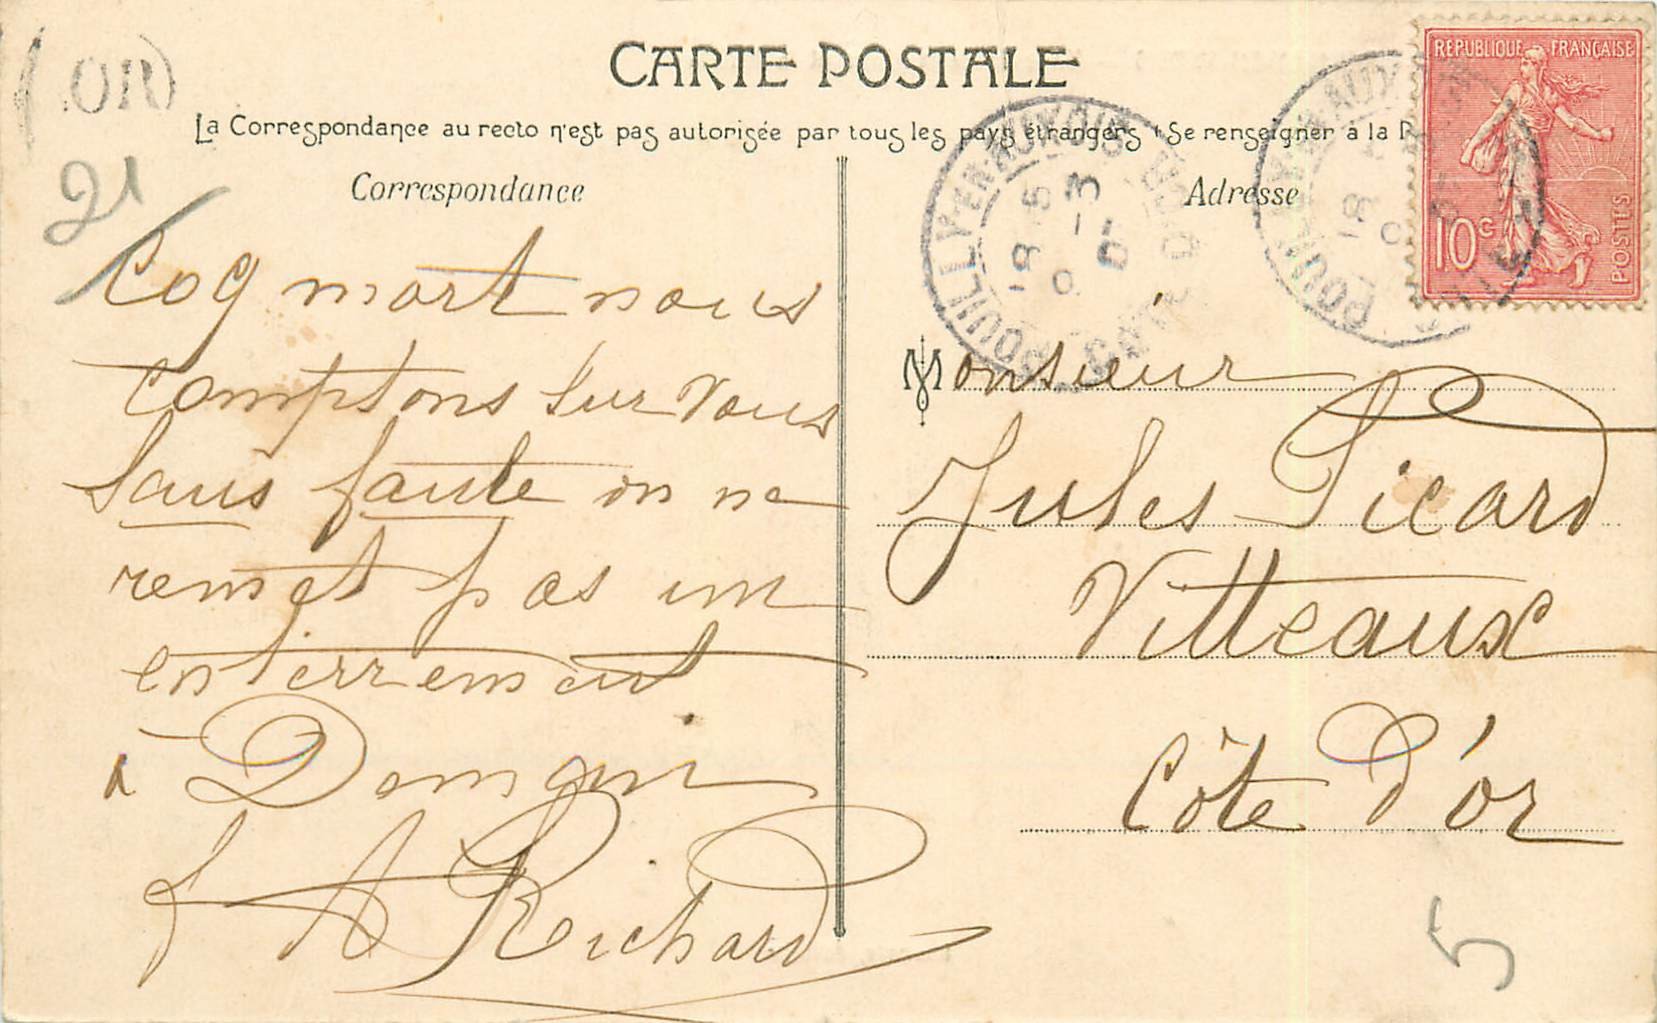 (OR)
CARTE POSTALE
La Correspondance au recto n'est pas autorisée par tous les pays étrangers (Se renseigner à la P
21
Correspondance
Adresse
REPUBLIQUE FRANÇAISE
10c
POSTES
POUILLY-EN-AUXOIS
CÔTE D'OR
18 15
3
Coq mort nous
comptons sur vous
sans faute on ne
remet pas un
enterrement
à Demain
A Richard
Monsieur
Jules Picard
Vitteaux
Côte d'or
5